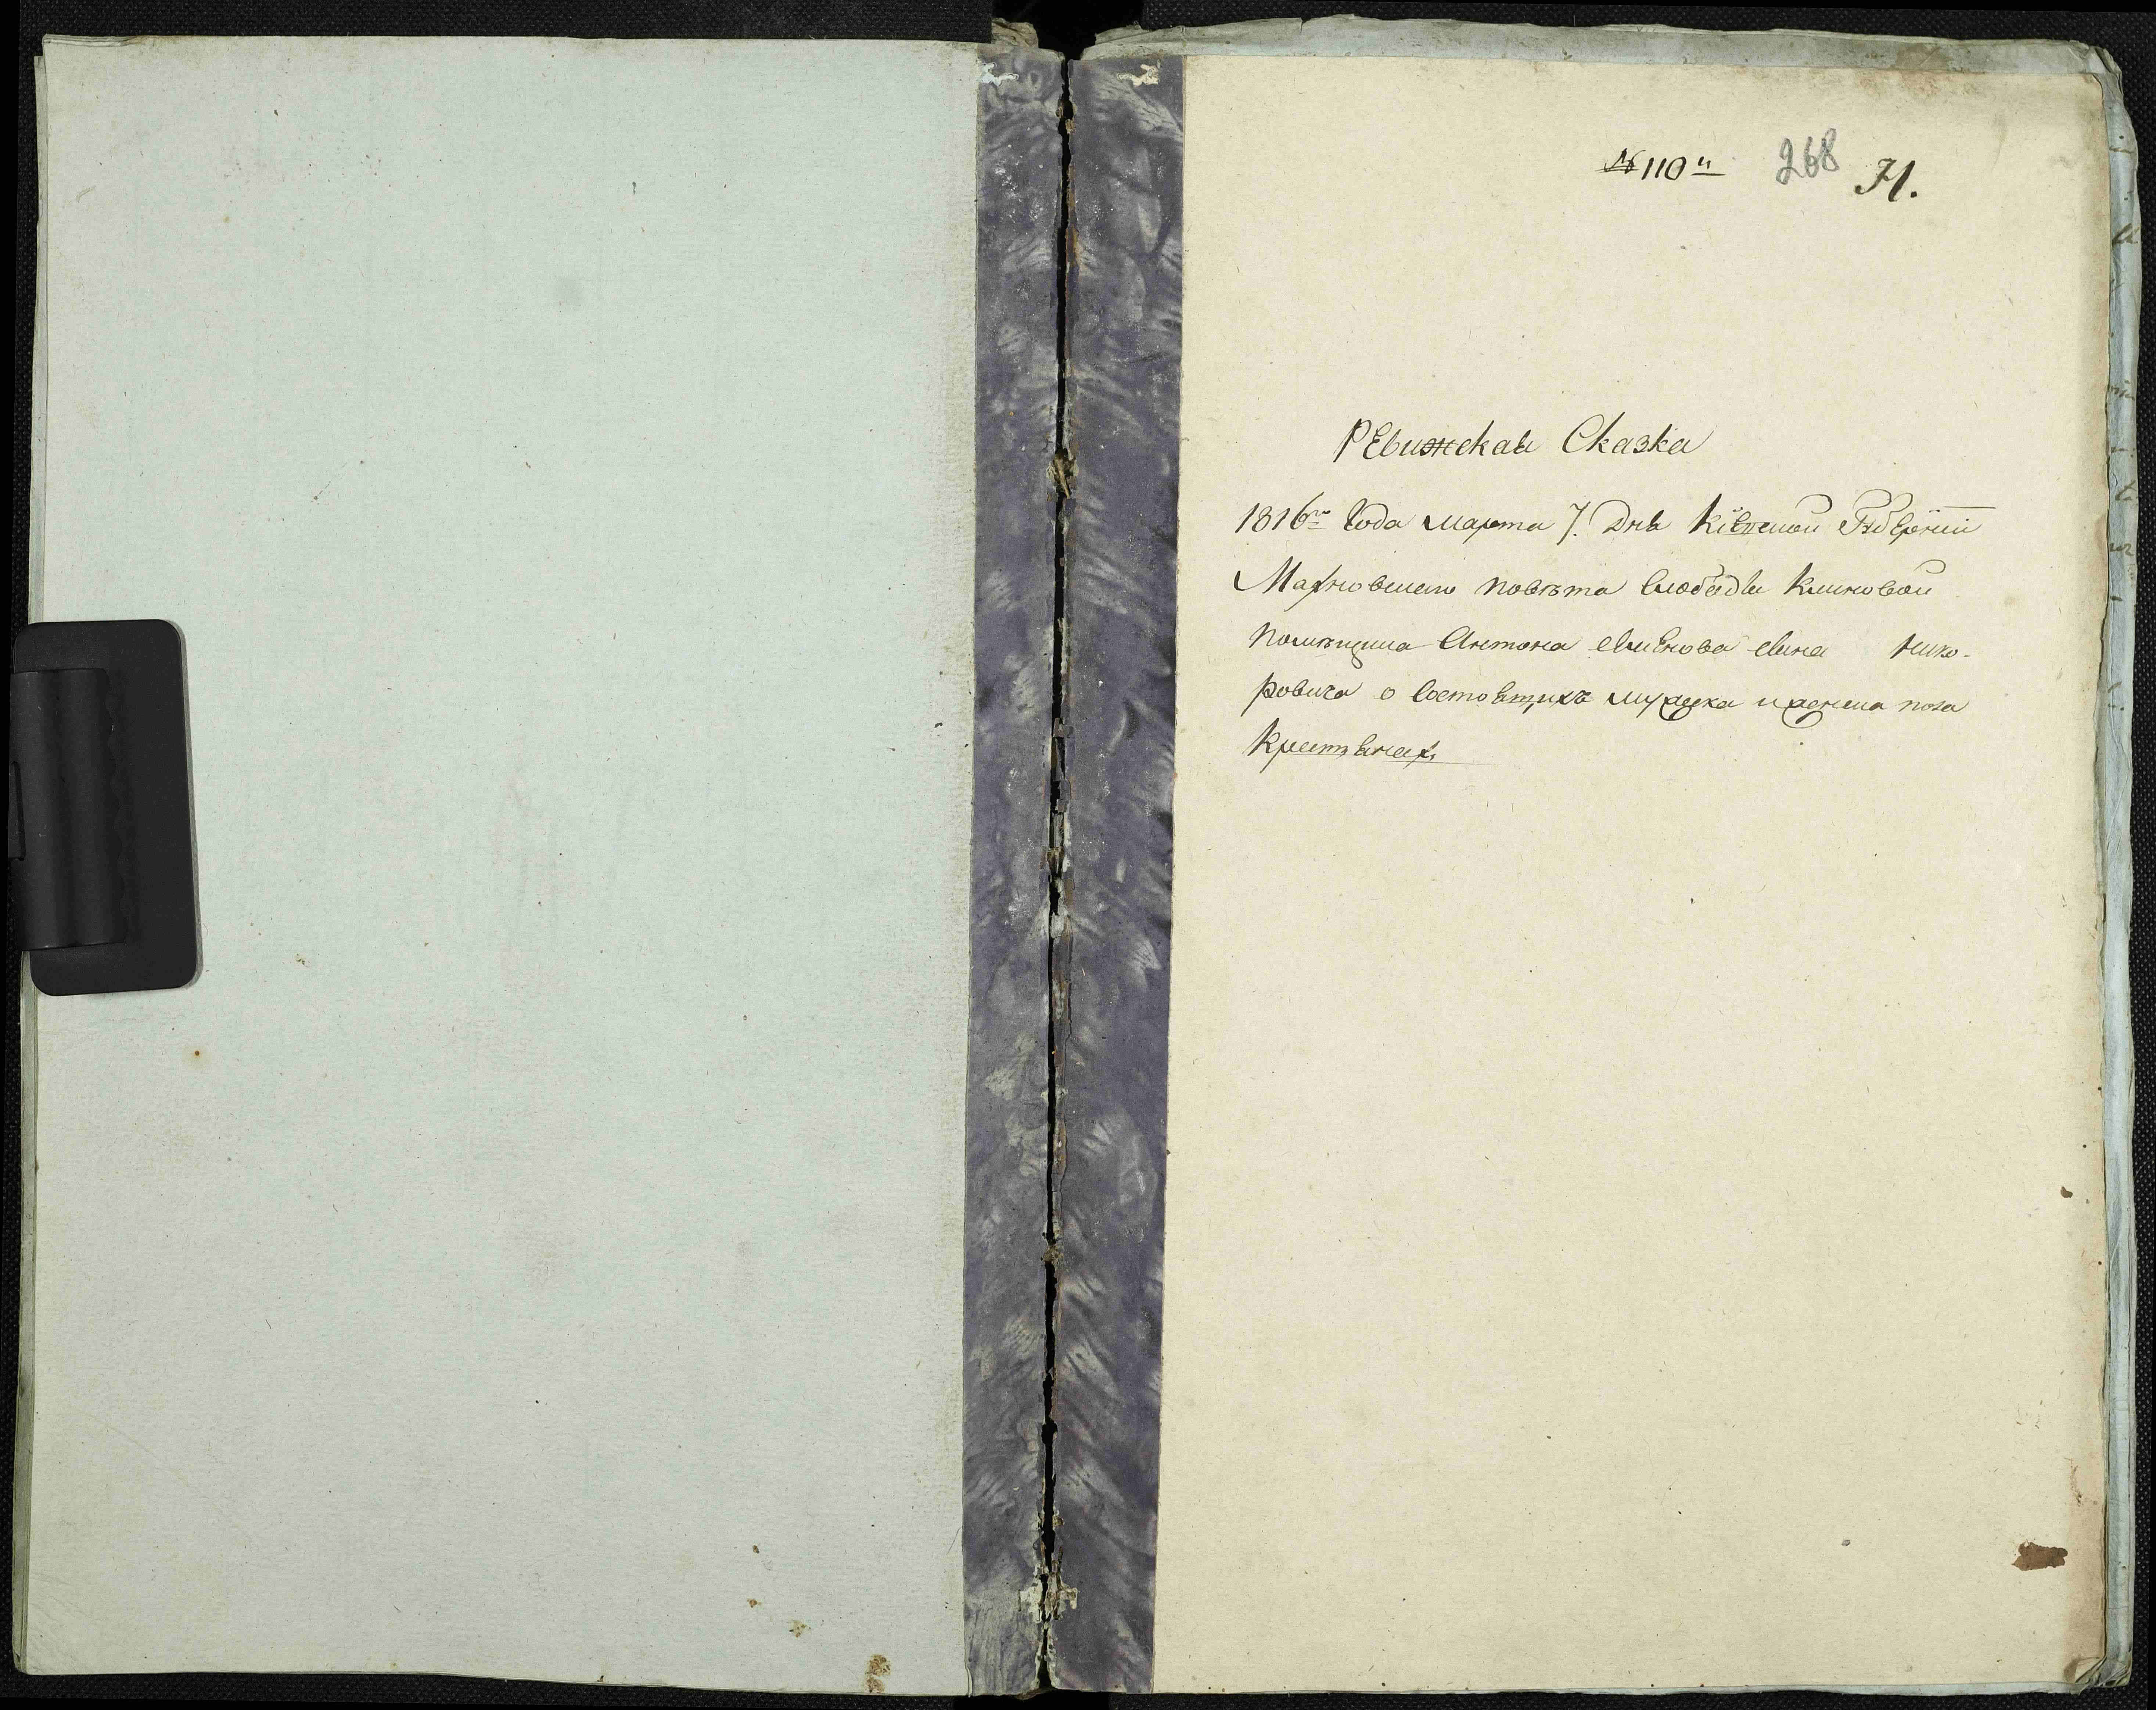 № 110й 268 71.
Ревижская Сказка
1816го Года марта 7. Дня Кіевской Губерніи
Махновскаго повѣта слободы Клиновой
помѣщика Антона сына
ровича о состоящихъ мужеска и женска пола
крестьянахъ